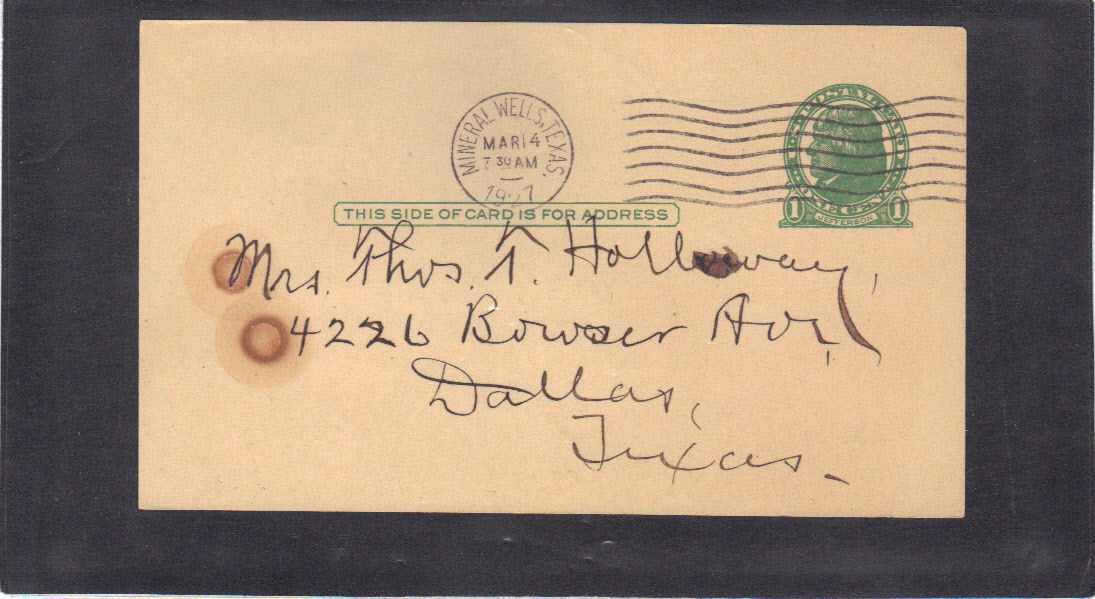 MINERAL WELLS, TEXAS.
MAR 14
7 30 AM
1927
U.S. POSTAL CARD
ONE CENT
1 JEFFERSON 1
THIS SIDE OF CARD IS FOR ADDRESS
Mrs. Thos. T. Holloway,
4226 Bowser Ave.
Dallas,
Texas.